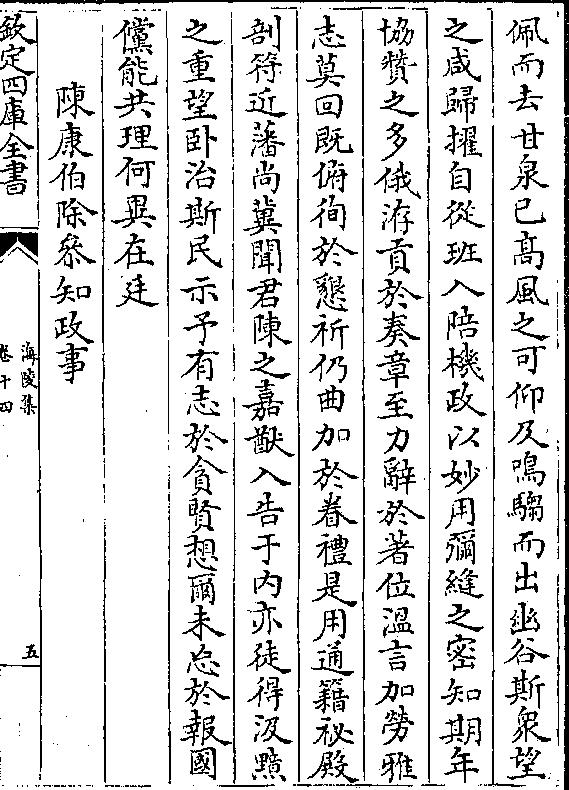 佩而去甘泉已髙風之可仰及鳴騶而出幽谷斯衆望
之咸歸擢自從班入陪機政以妙用彌縫之密知期年
協賛之多俄洊貢於奏章至力辭於著位溫言加勞雅
志莫回既俯徇於懇祈仍曲加於眷禮是用通籍祕殿
剖符近藩尚冀聞君陳之嘉猷入告于内亦徒得汲黯
之重望卧治斯民示予有志於貪賢想爾未忘於報國
儻能共理何異在廷
陳康伯除叅知政事
欽定四庫全書
海陵集
卷十四
五